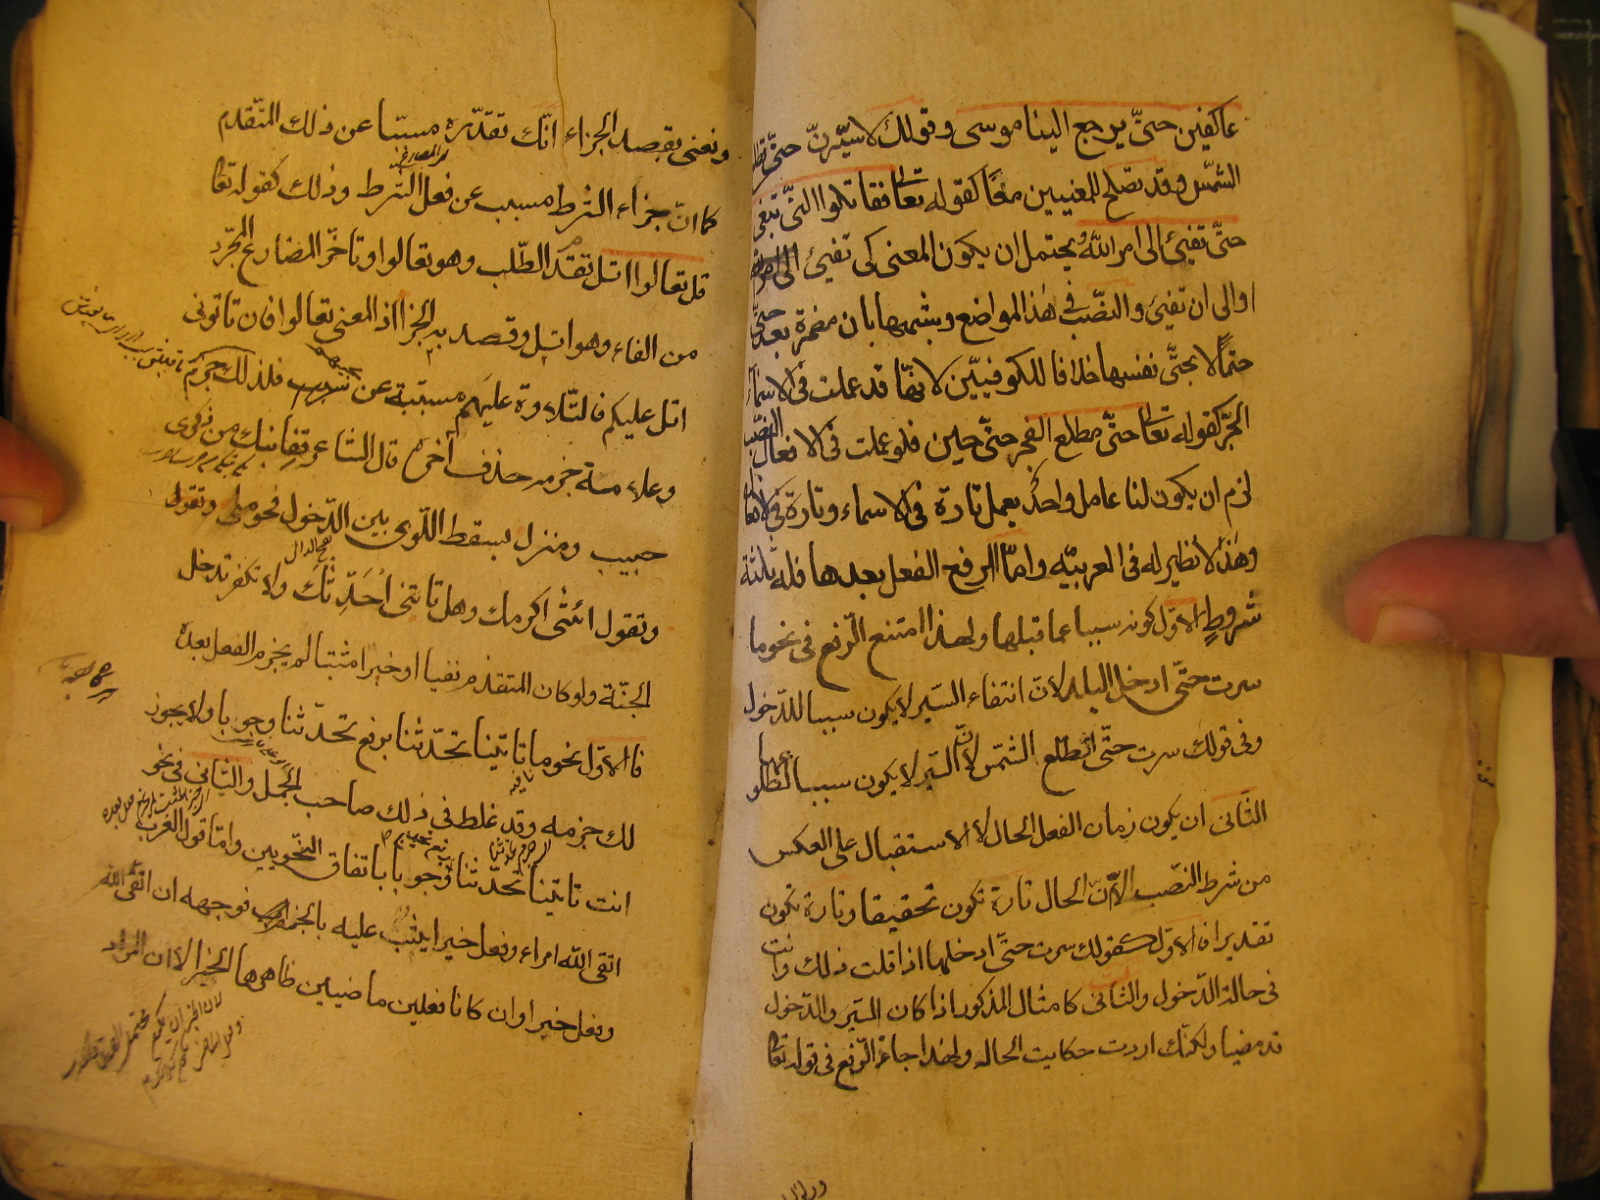 عاكفين حتّى يرجع الينا موسى وقولك لاسيّرنّ حتّى تطلع
الشمّس وقد تصلح للمعنيين معًا كقوله تعا فقاتلوا التّى تبغى
حتّى تفيئ الى امر الله يحتمل ان يكون المعنى كى تفيئ الى امر الله
او الى ان تفيئ والنصّب فى هذا المواضع وبشبهها بان مضمرة بعد حتّى
حتمًا لا بحتّى نفسها خلافا للكوفييّن لانهّا قد عملت فى الاسماء
الجرّ كقوله تعا حتّى مطلع الفجر حتّى حين فلو عملت فى الافعال النصّب
لزم ان يكون لنا عامل واحدُ يعمل تارة فى الاسماء وتارة فى الافعا
وهذا لا نظير له فى العربيّه وامّا الرفع الفعل بعدها فله ثلثة
شروطٍ الاوّل كونه سببا عما قبلها ولهذا امتنع الرّفع فى نحو ما
سرت حتّى ادخل البلد لانّ انتفاء السّير لا يكون سببا للدّخول
وفى قولك سرت حتّى اتطلع الشمّس لانّ السّير لا يكون سببا لطلوعها
الثّانى ان يكون زمان الفعل الحال لا الاستقبال على العكس
من شرط النصّب الا انّ الحال تارة تكون تحقيقا وتارة تكون
تقديرا فالاوّل كقولك سرت حتّى ادخلها اذا قلت ذلك وانت
فى حالة الدّخول والثّانى كا مثال المذكور اذا كان السّير والدّخول
قد مضيا ولكنّك اردت حكايت الحال ولهذا جاء الرّفع فى قوله تعا
ونعنى بقصد الجزاء انّك تقدّره مسببا عن ذلك المتّقدم
كما انّ جزاء الشرط مسبب عن فعل الشّرط وذلك كقوله تعا
قل تعالوا اتل تقدّم الطّلب وهو تعالوا وتاخّر المضارع المجرّد
من الفاء وهو اتل وقصد به الجزا اذ المعنى تعالوا فان تاتونى
اتل عليكم فالتّلاوة عليهم مسببّة عن مجيئهم فلذلك جزم
وعلامة جزمه حذف آخره قال الشاعر قفا نبك من ذكرى
حبيب ومنزل بسقط اللّوى بين الدّخول فحومل وتقول
وتقول ائتنى اكرمك وهل تاتينى اُحَدِّثْكَ ولا تكفر تدخل
بفتح الدال
الجنّة ولو كان المتقدم نفيا او خبرا مثبتا لم يجزم الفعل بعده
فالاوّل نحو ما تاتينا تحدّثنا برفع تحدّثنا وجوبا ولا يجوز
لك جزمه وقد غلط فى ذلك صاحب الجمل والثّانى فى نحو
انت تاتينا تحدّثنا وجوبا باتفاق النحّويين وامّا قول العرب
اتقى الله امراء وفعل خيرا يثب عليه بالجزم فوجهه ان اتقى الله
وفعل خيرا وان كانا فعلين ماضيين ظاهرها الخبر الا ان المراد